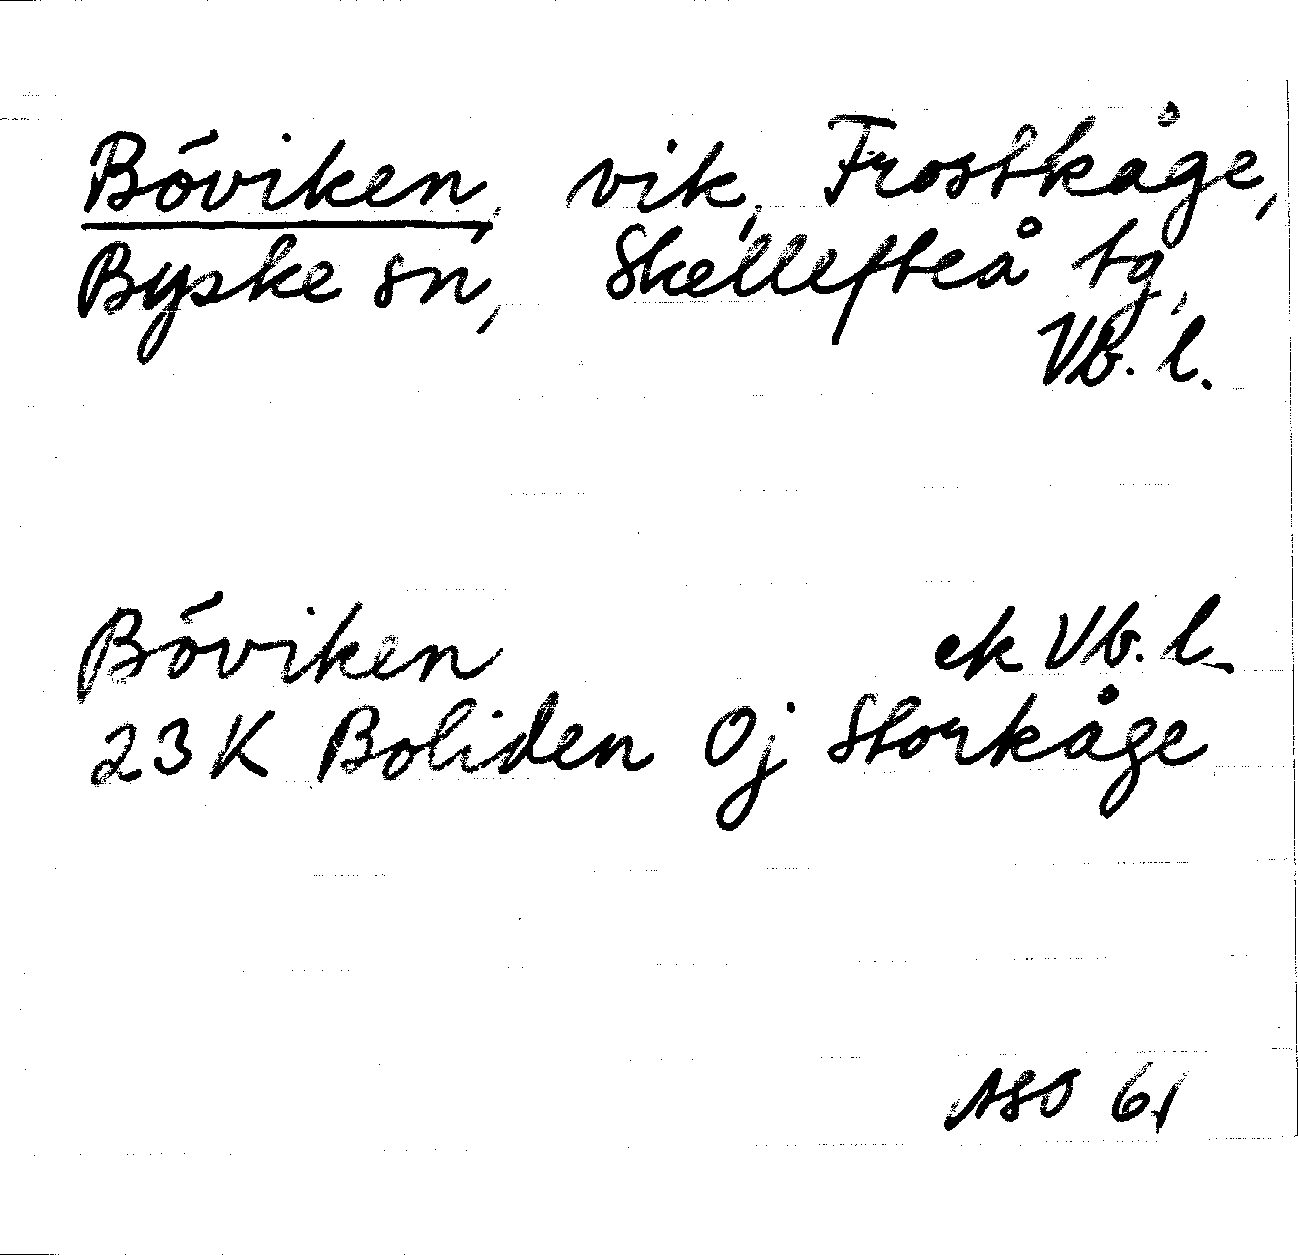 Böviken, vik, Frostkåge,
Byske sn, Skellefteå tg,
Vb. l.
Böviken ek Vb. l.
23K Boliden 0j Storkåge
ASO 61